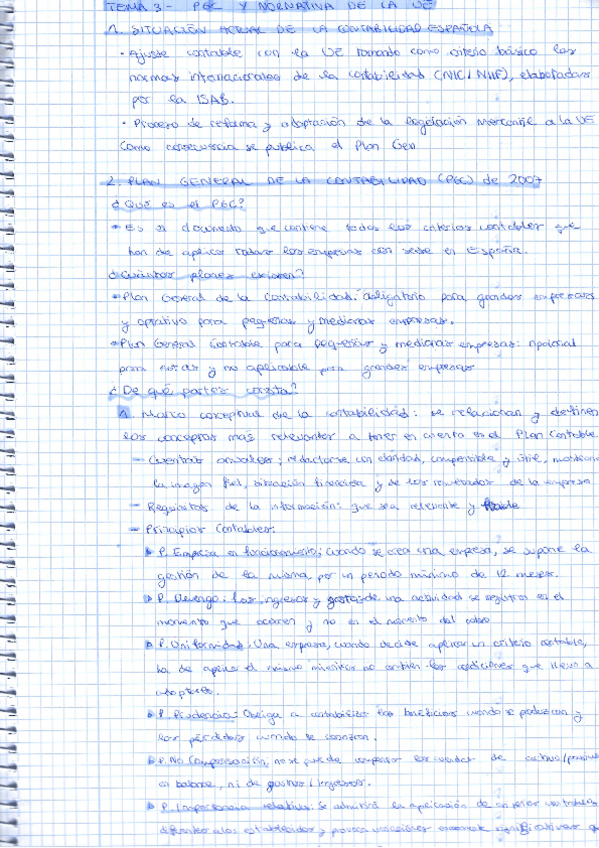 TEMA 3- PGC Y NORMATIVA DE LA UE
1. SITUACIÓN ACTUAL DE LA CONTABILIDAD ESPAÑOLA
· Ajuste contable con la UE tomando como criterio básico las
normas internacionales de la contabilidad (NIC/NIIF), elaboradas
por la ISAB.
· Proceso de reforma y adaptación de la legislación mercantil a la UE
Como consecuencia se publica el Plan Gen
2. PLAN GENERAL DE LA CONTABILIDAD (PGC) de 2007
¿Qué es el PGC?
Es el documento que contiene todos los criterios contables que
han de aplicar todas las empresas con sede en España.
¿Cuántos planes existen?
Plan General de la Contabilidad: obligatorio para grandes empresas
y optativo para pequeñas y medianas empresas.
Plan General Contable para pequeñas y medianas empresas: opcional
para estas y no aplicable para grandes empresas
¿De qué partes consta?
1. Marco conceptual de la contabilidad: se relacionan y definen
los conceptos más relevantes a tener en cuenta en el Plan Contable
- Cuentas anuales; redactarse con claridad, comprensible y útil, mostrando
la imagen fiel, situación financiera y de los resultados de la empresa
- Requisitos de la información: que sea relevante y fiable
- Principios Contables:
P. Empresa en funcionamiento; Cuando se crea una empresa, se supone la
gestión de la misma, por un periodo mínimo de 12 meses.
P. Devengo: Los ingresos y gastos de una actividad se registran en el
momento que ocurren y no en el momento del cobro
P. Uniformidad: Una empresa, cuando decide aplicar un criterio contable,
ha de aplicar el mismo mientras no cambien las condiciones que llevó a
adoptarlo.
P. Prudencia: Obliga a contabilizar los beneficios cuando se produzcan y
las pérdidas cuando se conozcan.
P. No Compensación, no se puede compensar las cuentas de activo/pasivo
en balance, ni de gastos/ingresos.
P. Importancia relativa: Se admitirá la aplicación de criterios contables
diferentes a los establecidos y provoca variaciones escasamente significativas